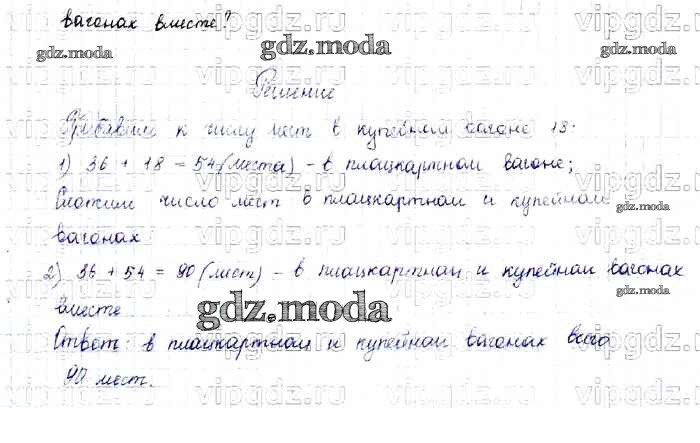 вагонах вместе?
Решение
Прибавим к числу мест в купейном вагоне 18.
1) 36 + 18 = 54 (места) - в плацкартном вагоне;
Сложим число мест в плацкартном и купейном
вагонах:
2) 36 + 54 = 90 (мест) - в плацкартном и купейном вагонах
вместе
Ответ: в плацкартном и купейном вагонах всего
90 мест.
gdz.moda
gdz.moda
gdz.moda
gdz.moda
gdz.moda
vipgdz.ru